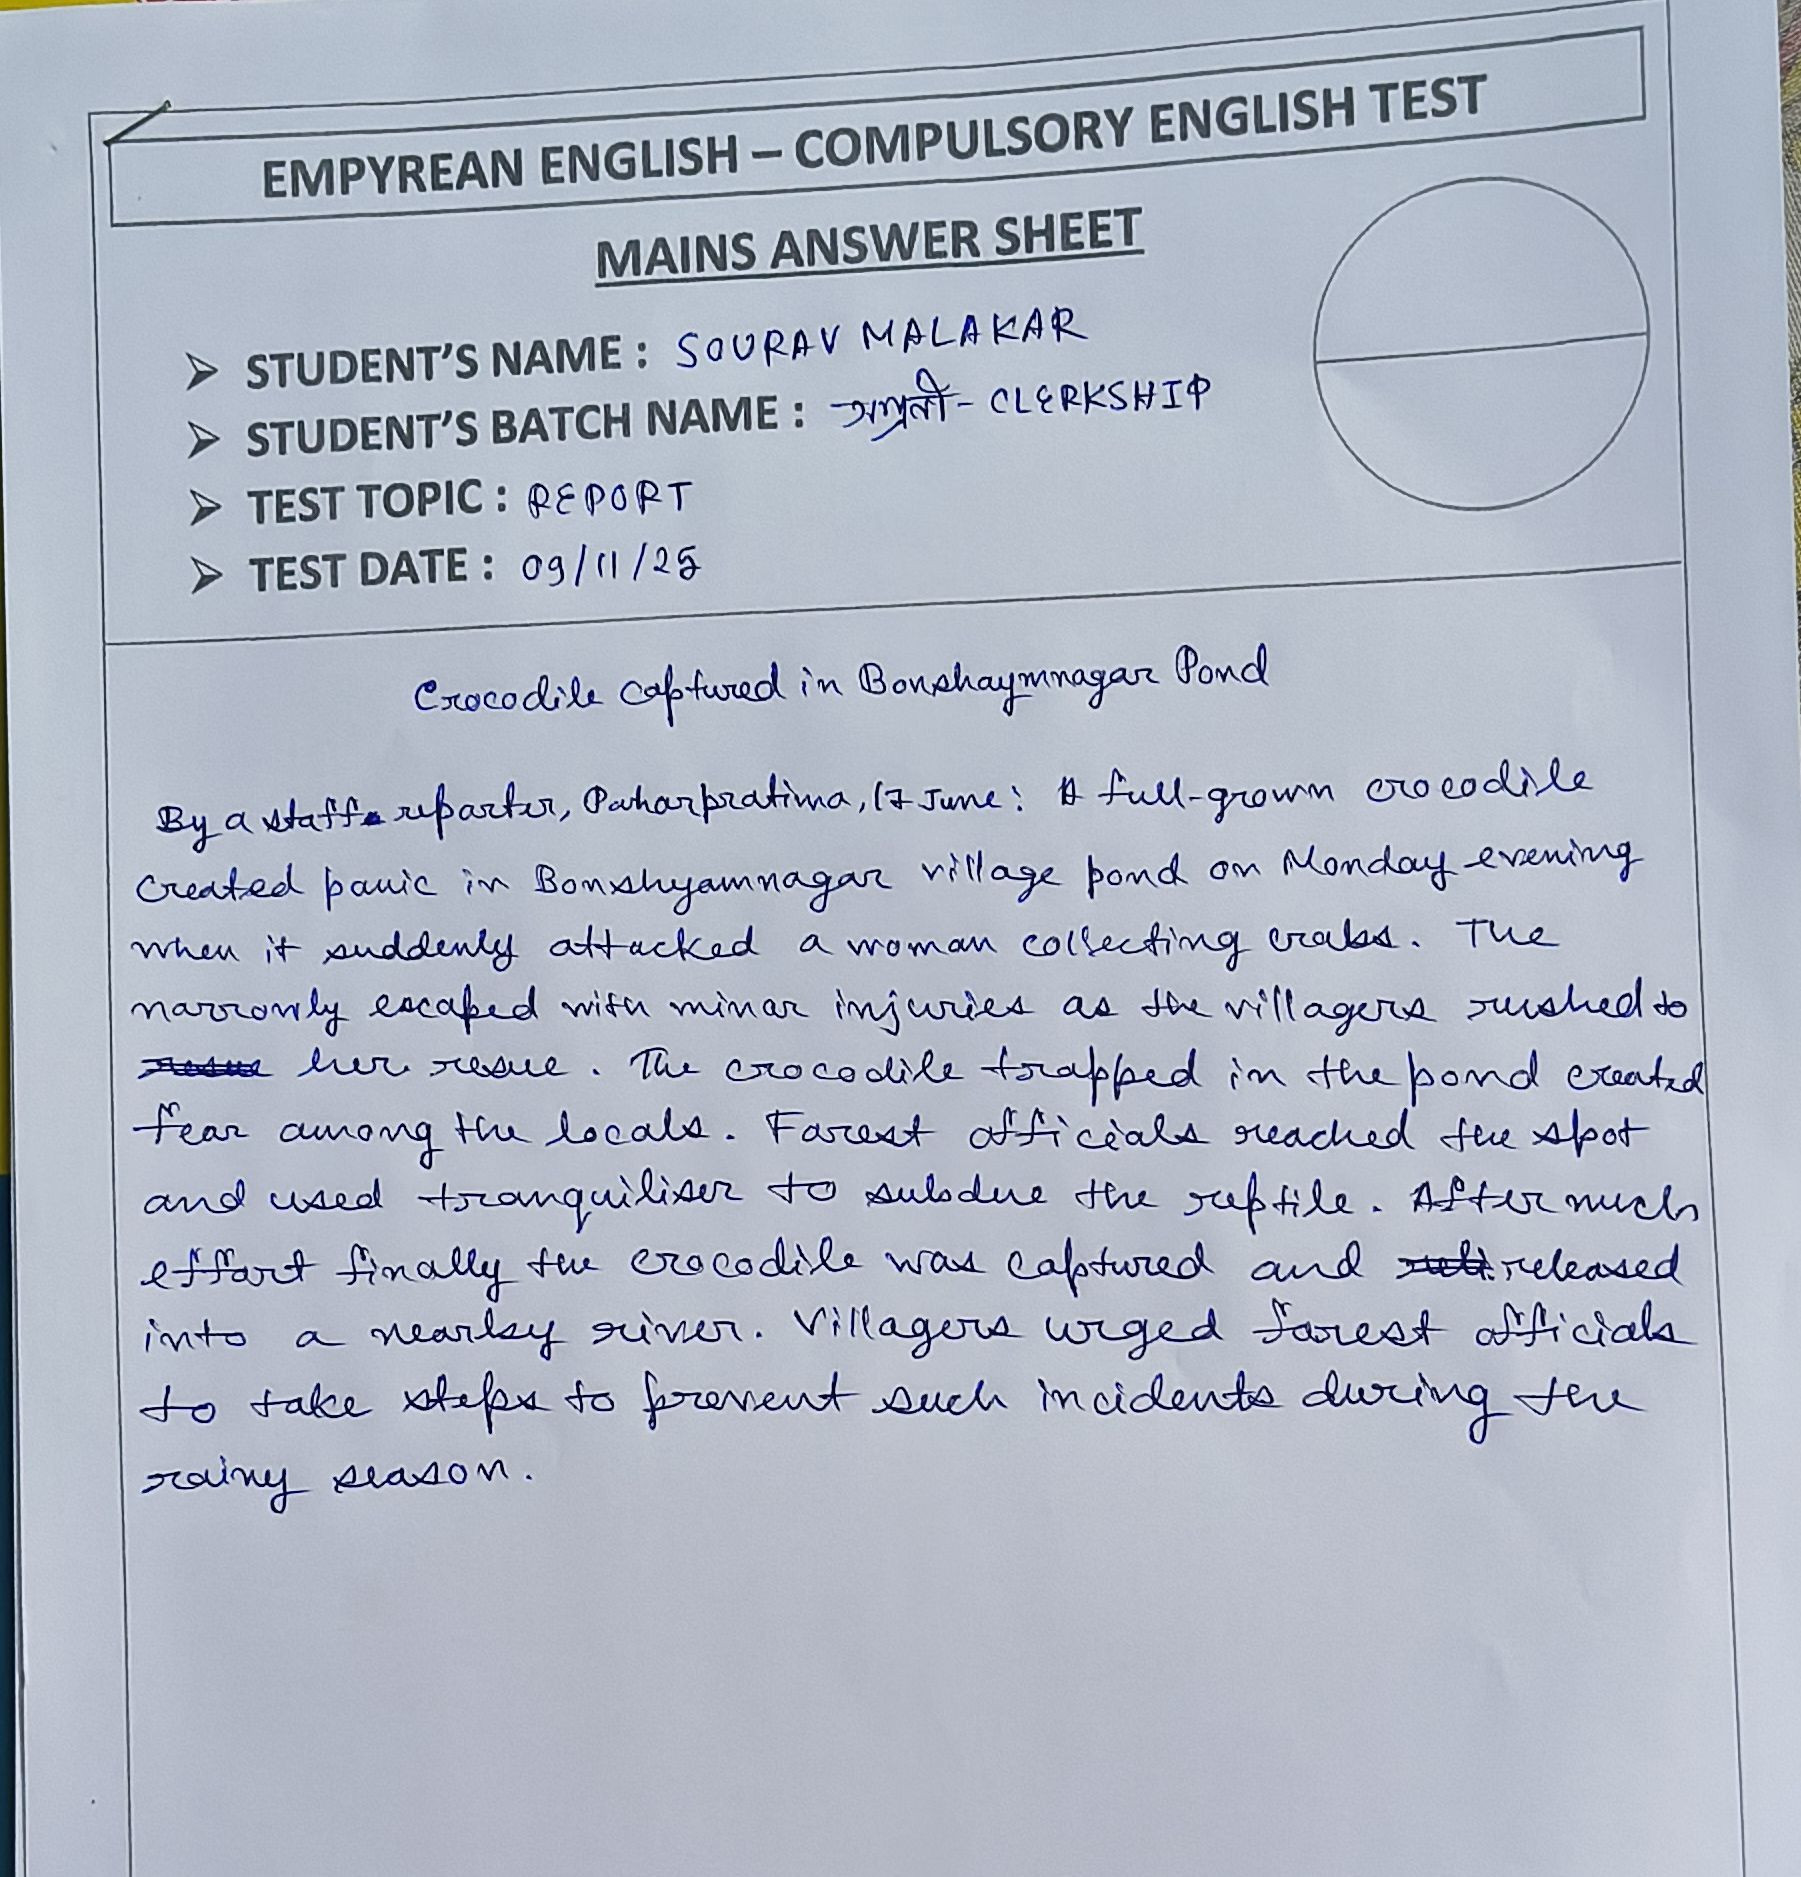 EMPYREAN ENGLISH – COMPULSORY ENGLISH TEST
MAINS ANSWER SHEET
➢ STUDENT'S NAME : SOURAV MALAKAR
➢ STUDENT'S BATCH NAME : - CLERKSHIP
➢ TEST TOPIC : REPORT
➢ TEST DATE : 09/11/25
Crocodile captured in Bonshaymnagar Pond
By a staff reporter, Paharpratima, 17 June: A full-grown crocodile
created panic in Bonshyamnagar village pond on Monday evening
when it suddenly attacked a woman collecting crabs. The
narrowly escaped with minor injuries as the villagers rushed to
her resue. The crocodile trapped in the pond created
fear among the locals. Forest officials reached the spot
and used tranquiliser to subdue the reptile. After much
effort finally the crocodile was captured and released
into a nearby river. Villagers urged forest officials
to take steps to prevent such incidents during the
rainy season.